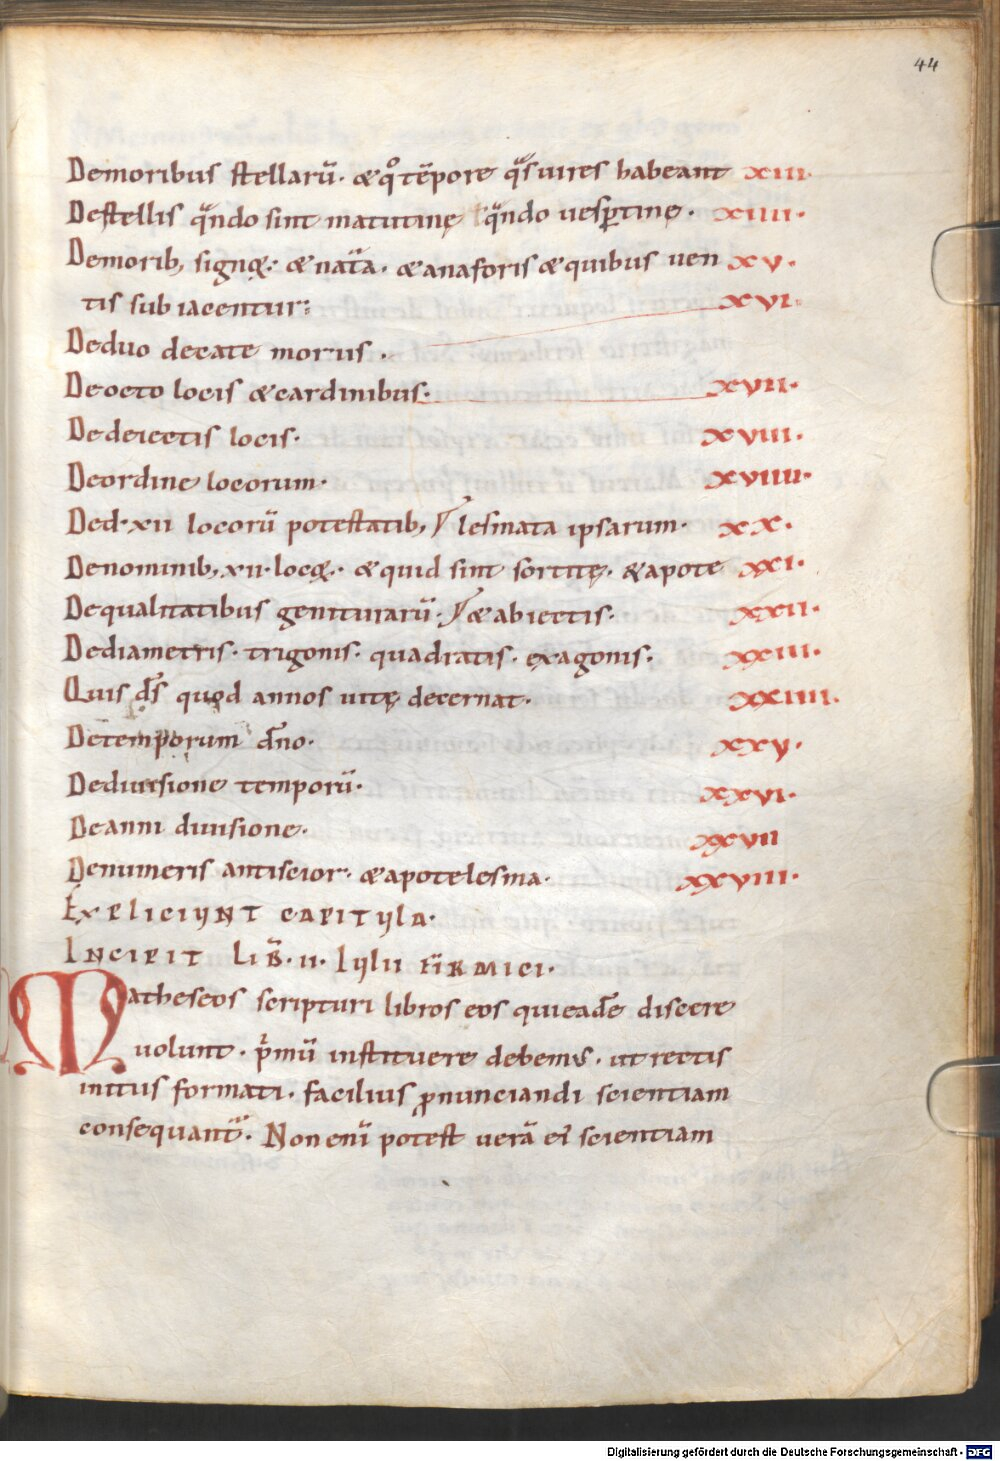 44
Demoribus stellarū· & qͦ tēpore qͣs uires habeant XIII·
Destellis qͣndo sint matutinę qͣndo uesꝑtinę· XIIII·
Demorib; signoꝝ· & natͣa· & anaforis & quibus uen XV·
tis subiacentur: XVI·
Deduo decate morus·
Deocto locis & cardinibus· XVII·
Dedeiectis locis· XVIII·
Deordine locorum· XVIIII·
Ded·xii locorū potestatib; lesmata ipsarum· XX·
Denominib; xii· locoꝝ· & quid sint sortitę· & apote XXI·
Dequalitatibus geniturarū· & abiectis· XXII·
Dediametris· trigonis· quadratis· exagonis· XXIII·
Quis d̄s quod annos uitę decernat· XXIIII·
Detemporum d̄no· XXV·
Dediuisione temporū· XXVI·
Deanni diuisione· XXVII
Denumeris antiscior· & apotelesma· XXVIII·
EXPLICIUNT CAPITULA·
INCIPIT LIB̄·II· IULII FIRMICI·
Matheseos scripturi libros eos qui eadē discere
uolunt· pͥmū instituere debemus· ut rectis
initus formati· facilius ꝓnunciandi scientiam
consequant᷑· Non enī potest uerā eī scientiam
Digitalisierung gefördert durch die Deutsche Forschungsgemeinschaft - DFG